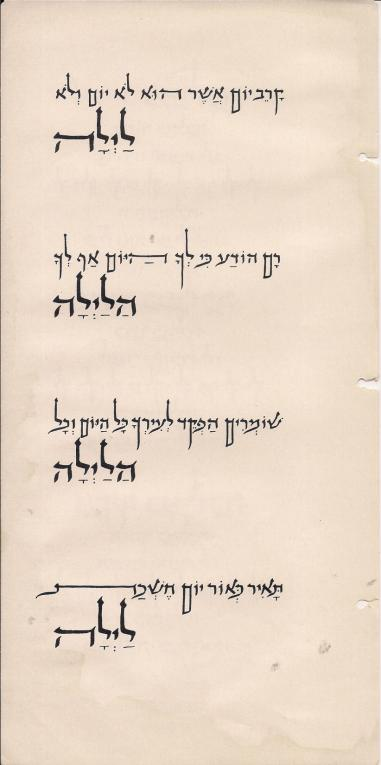 קָרֵב יוֹם אֲשֶׁר הוּא לֹא יוֹם וְלֹא
לַיְלָה
רָם הוֹדַע כִּי לְךָ הַיּוֹם אַף לְךָ
הַלַּיְלָה
שׁוֹמְרִים הַפְקֵד לְעִירְךָ כָּל הַיּוֹם וְכָל
הַלַּיְלָה
תָּאִיר כְּאוֹר יוֹם חֶשְׁכַת
לַיְלָה